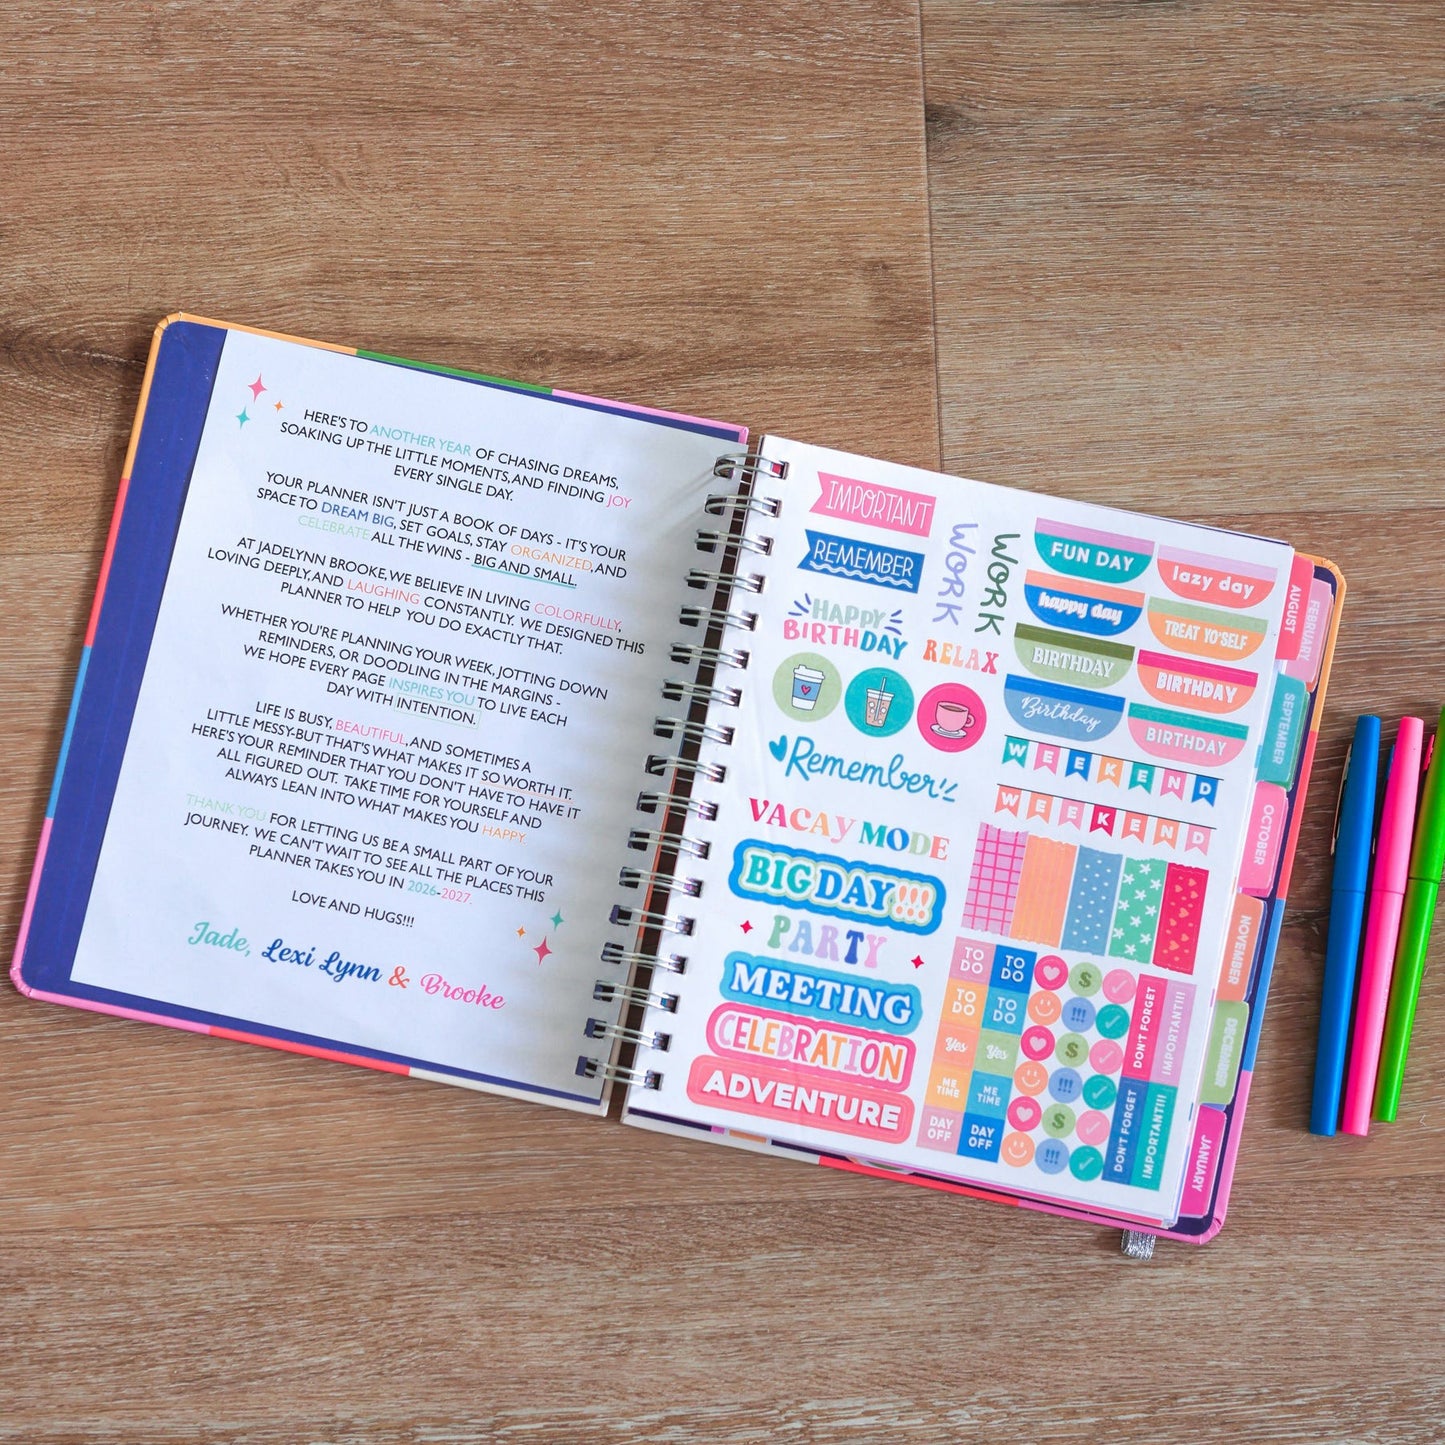 HERE'S TO ANOTHER YEAR OF CHASING DREAMS,
SOAKING UP THE LITTLE MOMENTS, AND FINDING JOY
EVERY SINGLE DAY.
YOUR PLANNER ISN'T JUST A BOOK OF DAYS - IT'S YOUR
SPACE TO DREAM BIG, SET GOALS, STAY ORGANIZED, AND
CELEBRATE ALL THE WINS - BIG AND SMALL.
AT JADELYNN BROOKE, WE BELIEVE IN LIVING COLORFULLY,
LOVING DEEPLY, AND LAUGHING CONSTANTLY. WE DESIGNED THIS
PLANNER TO HELP YOU DO EXACTLY THAT.
WHETHER YOU'RE PLANNING YOUR WEEK, JOTTING DOWN
REMINDERS, OR DOODLING IN THE MARGINS -
WE HOPE EVERY PAGE INSPIRES YOU TO LIVE EACH
DAY WITH INTENTION.
LIFE IS BUSY, BEAUTIFUL, AND SOMETIMES A
LITTLE MESSY-BUT THAT'S WHAT MAKES IT SO WORTH IT.
HERE'S YOUR REMINDER THAT YOU DON'T HAVE TO HAVE IT
ALL FIGURED OUT. TAKE TIME FOR YOURSELF AND
ALWAYS LEAN INTO WHAT MAKES YOU HAPPY.
THANK YOU FOR LETTING US BE A SMALL PART OF YOUR
JOURNEY. WE CAN'T WAIT TO SEE ALL THE PLACES THIS
PLANNER TAKES YOU IN 2026-2027.
LOVE AND HUGS!!!
Jade, Lexi Lynn & Brooke
IMPORTANT
REMEMBER
HAPPY
BIRTHDAY
WORK
WORK
RELAX
Remember!!
VACAY MODE
BIG DAY!!!
PARTY
MEETING
CELEBRATION
ADVENTURE
FUN DAY
lazy day
happy day
TREAT YO'SELF
BIRTHDAY
BIRTHDAY
Birthday
BIRTHDAY
WEEKEND
WEEKEND
TO DO
TO DO
TO DO
TO DO
Yes
Yes
ME TIME
ME TIME
DAY OFF
DAY OFF
$
!!!
$
!!!
$
!!!
DON'T FORGET
IMPORTANT!!!
DON'T FORGET
IMPORTANT!!!
AUGUST
FEBRUARY
SEPTEMBER
OCTOBER
NOVEMBER
DECEMBER
JANUARY